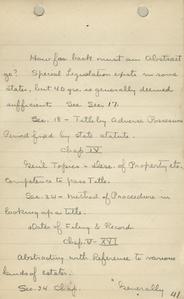 How far back must an Abstract
go? Special Legislation exists in some
states, but 40 yrs. is generally deemed
sufficient. See Sec. 17.
Sec. 18 - Title by Adverse Possession
Period fixed by state statute.
Chap IV
Genl Topics - Desc. of Property etc.
Competence to pass Title.
Sec. 24 - Method of Procedure in
looking up a title.
Dates of Filing & Record
Chap. V - XVI
Abstracting with Reference to various
kinds of estates.
Sec. 34 Chap. "Generally
41